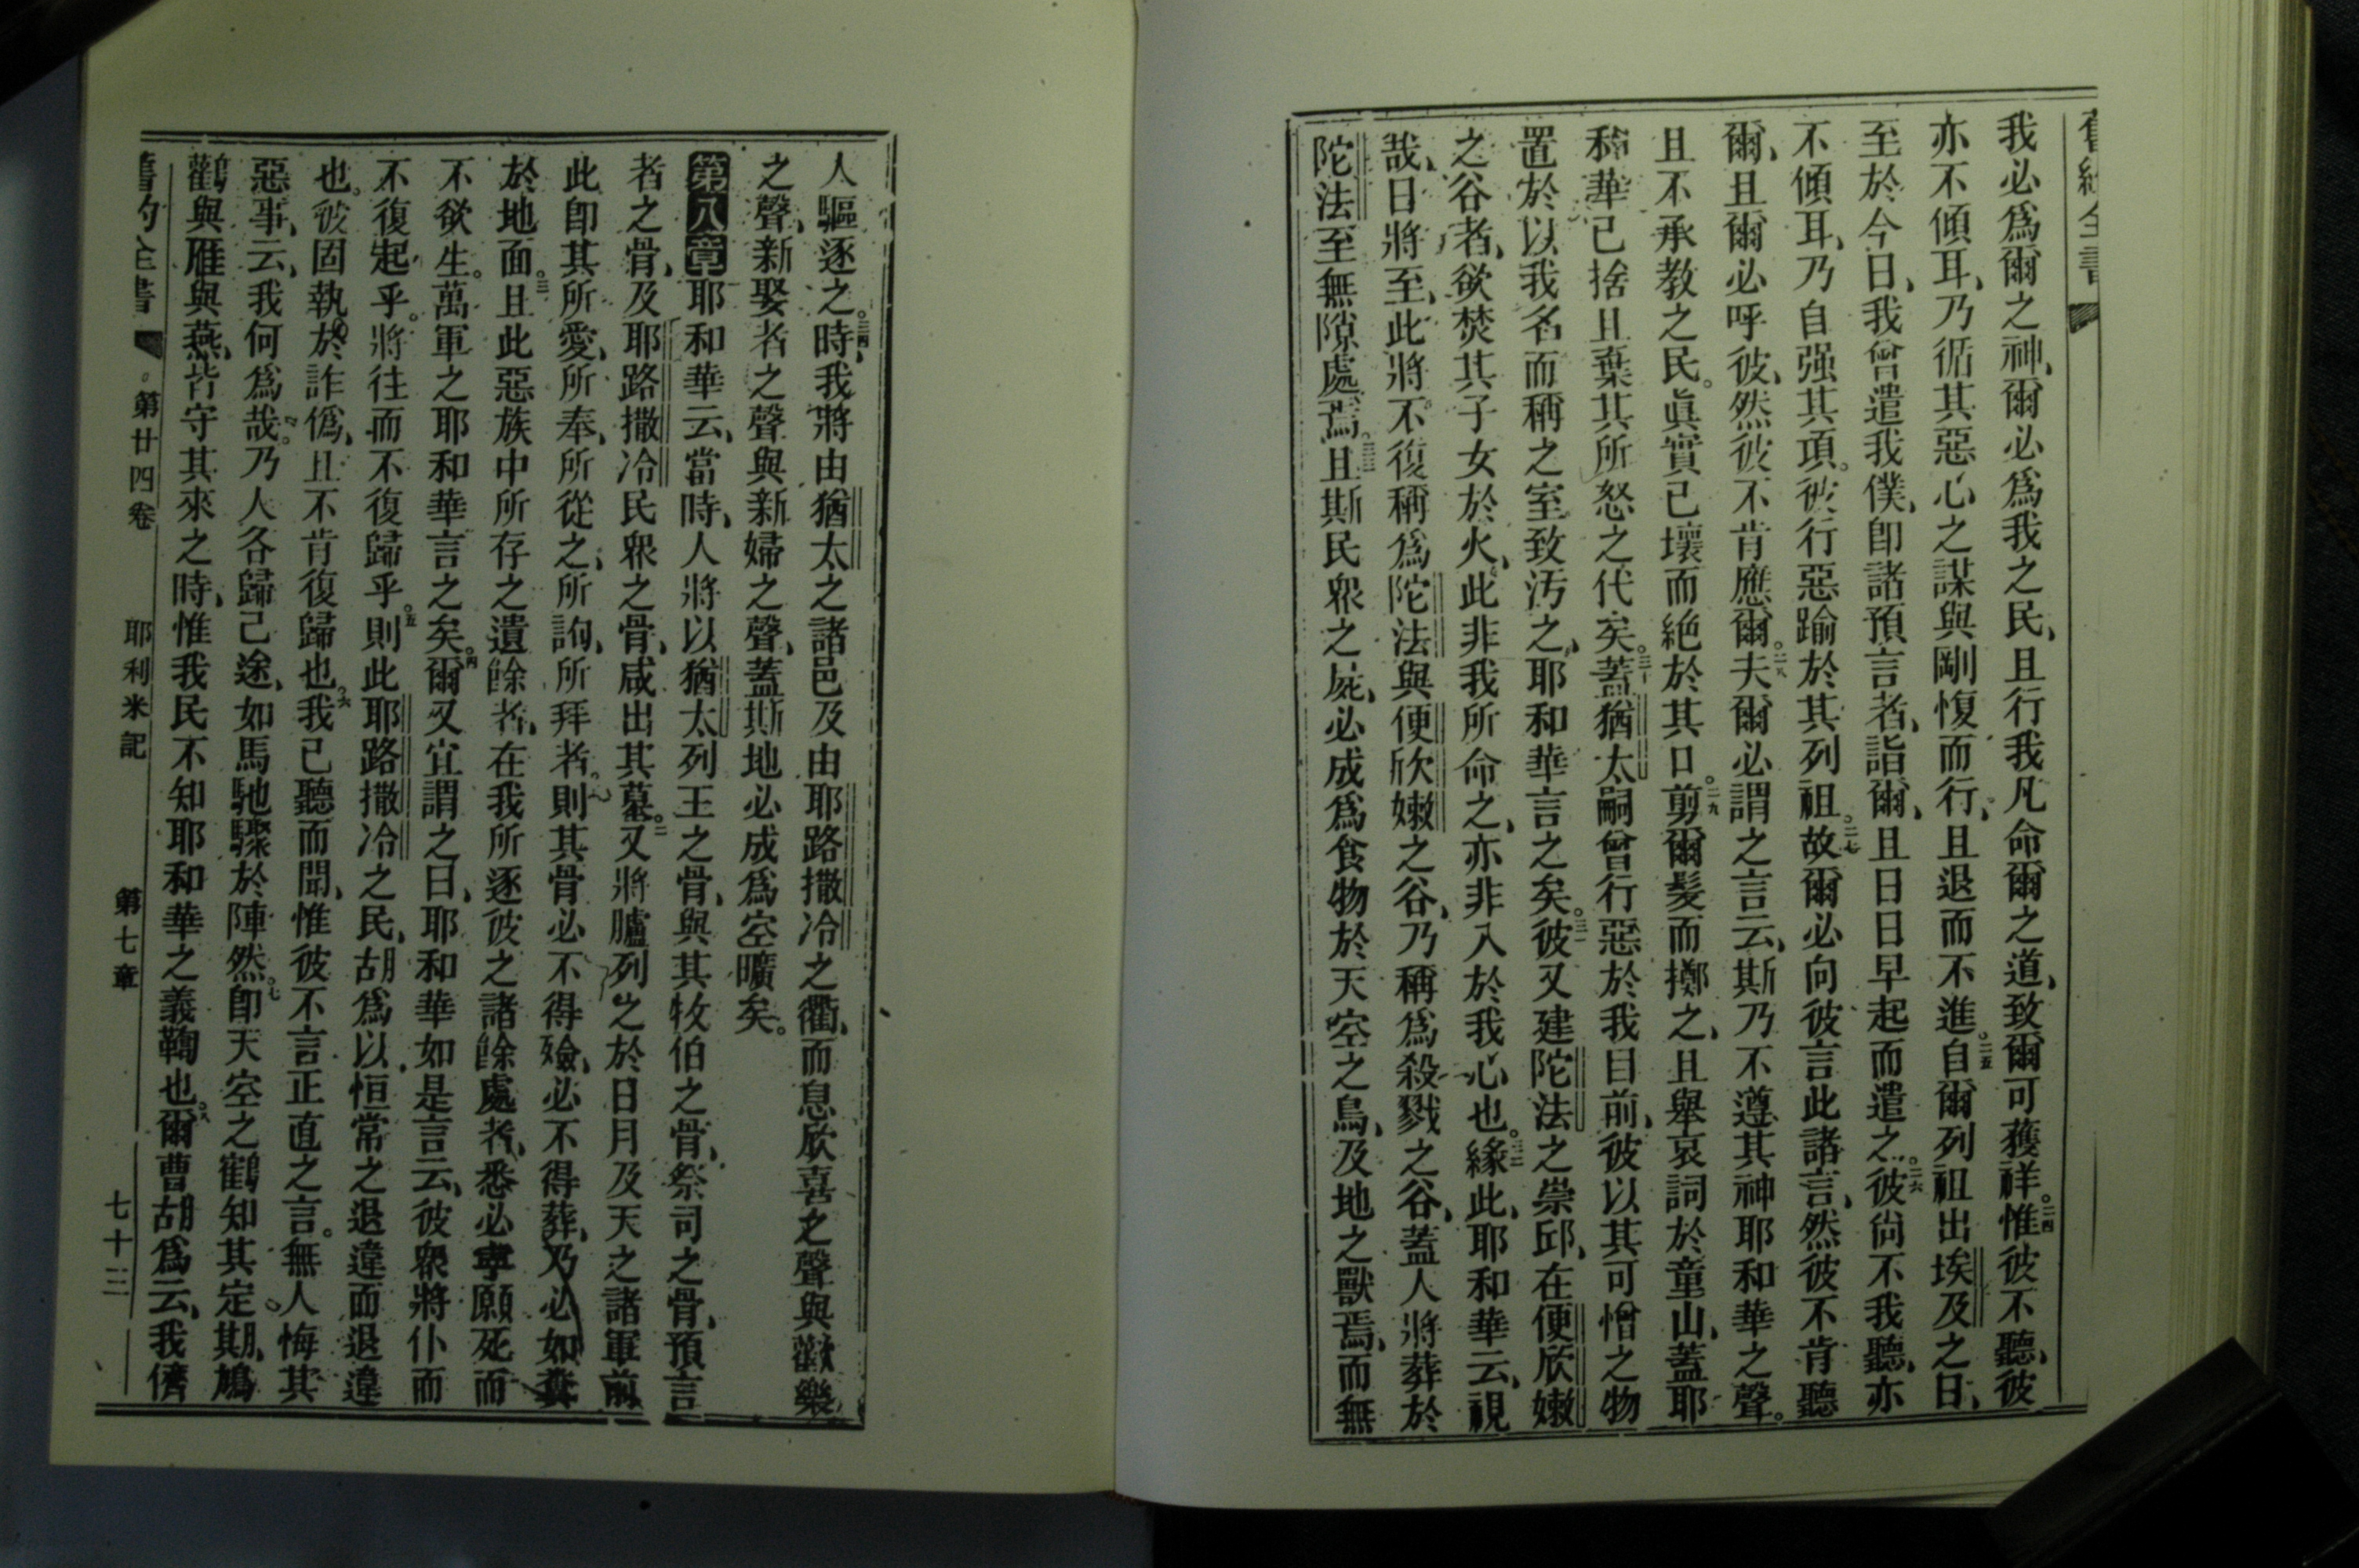 舊約全書
我必爲爾之神、爾必爲我之民、且行我凡命爾之道、致爾可獲祥。二四惟彼不聽、彼
亦不傾耳、乃循其惡心之謀與剛愎而行、且退而不進。二五自爾列祖出埃及之日、
至於今日、我曾遣我僕、卽諸預言者、詣爾、且日日早起而遣之。二六彼尙不我聽、亦
不傾耳、乃自强其項。彼行惡踰於其列祖。二七故爾必向彼言此諸言、然彼不肯聽
爾、且爾必呼彼、然彼不肯應爾。二八夫爾必謂之言云、斯乃不遵其神耶和華之聲。
且不承教之民。眞實已壞而絕於其口。二九剪爾髮而擲之、且舉哀詞於童山、蓋耶
和華已捨且棄其所怒之代矣。三十蓋猶太嗣曾行惡於我目前、彼以其可憎之物
置於以我名而稱之室致汚之、耶和華言之矣。三一彼又建陀法之崇邱、在便欣嫩
之谷者、欲焚其子女於火、此非我所命之、亦非入於我心也。三二緣此、耶和華云、視
哉、日將至、此將不復稱爲陀法與便欣嫩之谷、乃稱爲殺戮之谷、蓋人將葬於
陀法至無隙處焉。三三且斯民衆之屍、必成爲食物於天空之鳥、及地之獸焉、而無
人驅逐之。三四時、我將由猶太之諸邑及由耶路撒冷之衢、而息欣喜之聲與歡樂
之聲、新娶者之聲與新婦之聲、蓋斯地必成爲空曠矣。
第八章耶和華云、當時、人將以猶太列王之骨、與其牧伯之骨、祭司之骨、預言
者之骨、及耶路撒冷民衆之骨、咸出其墓。二又將臚列之於日月及天之諸軍前、
此卽其所愛、所奉、所從之、所詢、所拜者。則其骨必不得殮、必不得葬、乃必如糞
於地面。三且此惡族中所存之遺餘者、在我所逐彼之諸餘處者、悉必寧願死而
不欲生。萬軍之耶和華言之矣。四爾又宜謂之曰、耶和華如是言云、彼衆將仆而
不復起乎。將往而不復歸乎。五則此耶路撒冷之民、胡爲以恒常之退違而退違
也。彼固執於詐僞、且不肯復歸也。六我已聽而聞、惟彼不言正直之言。無人悔其
惡事、云、我何爲哉。乃人各歸己途、如馬馳驟於陣然。七卽天空之鶴知其定期、鳩
鸛與雁與燕、皆守其來之時、惟我民不知耶和華之義鞫也。八爾曹胡爲云、我儕
舊約全書 第廿四卷 耶利米記 第七章 七十三